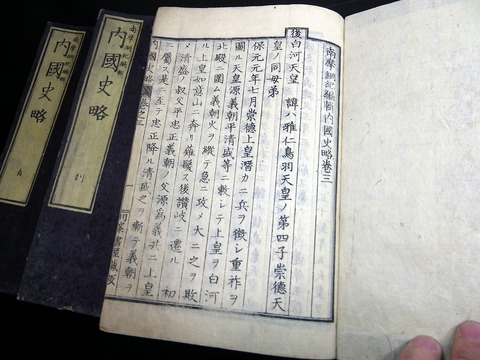 南摩綱紀編輯內國史略卷三
後白河天皇 諱ハ雅仁鳥羽天皇ノ第四子崇德天
皇ノ同母弟
保元元年七月崇德上皇潛カニ兵ヲ徴シ重祚ヲ
圖ル天皇源義朝平清盛等ニ敕シテ上皇ヲ白河
北殿ニ圍ム義朝火ヲ縱テ急ニ攻メ大ニ之ヲ敗
ル上皇如意山ニ奔リ薙髮ス後讚岐ニ遷ル 初
メ清盛ノ叔父平忠正義朝ノ父源為義共ニ上皇
ニ屬ス是ニ至テ忠正降ル清盛之ヲ斬テ義朝ヲ
內國史略 卷之三 一
南摩綱紀編輯
內國史略
南摩綱紀編輯
內國史略